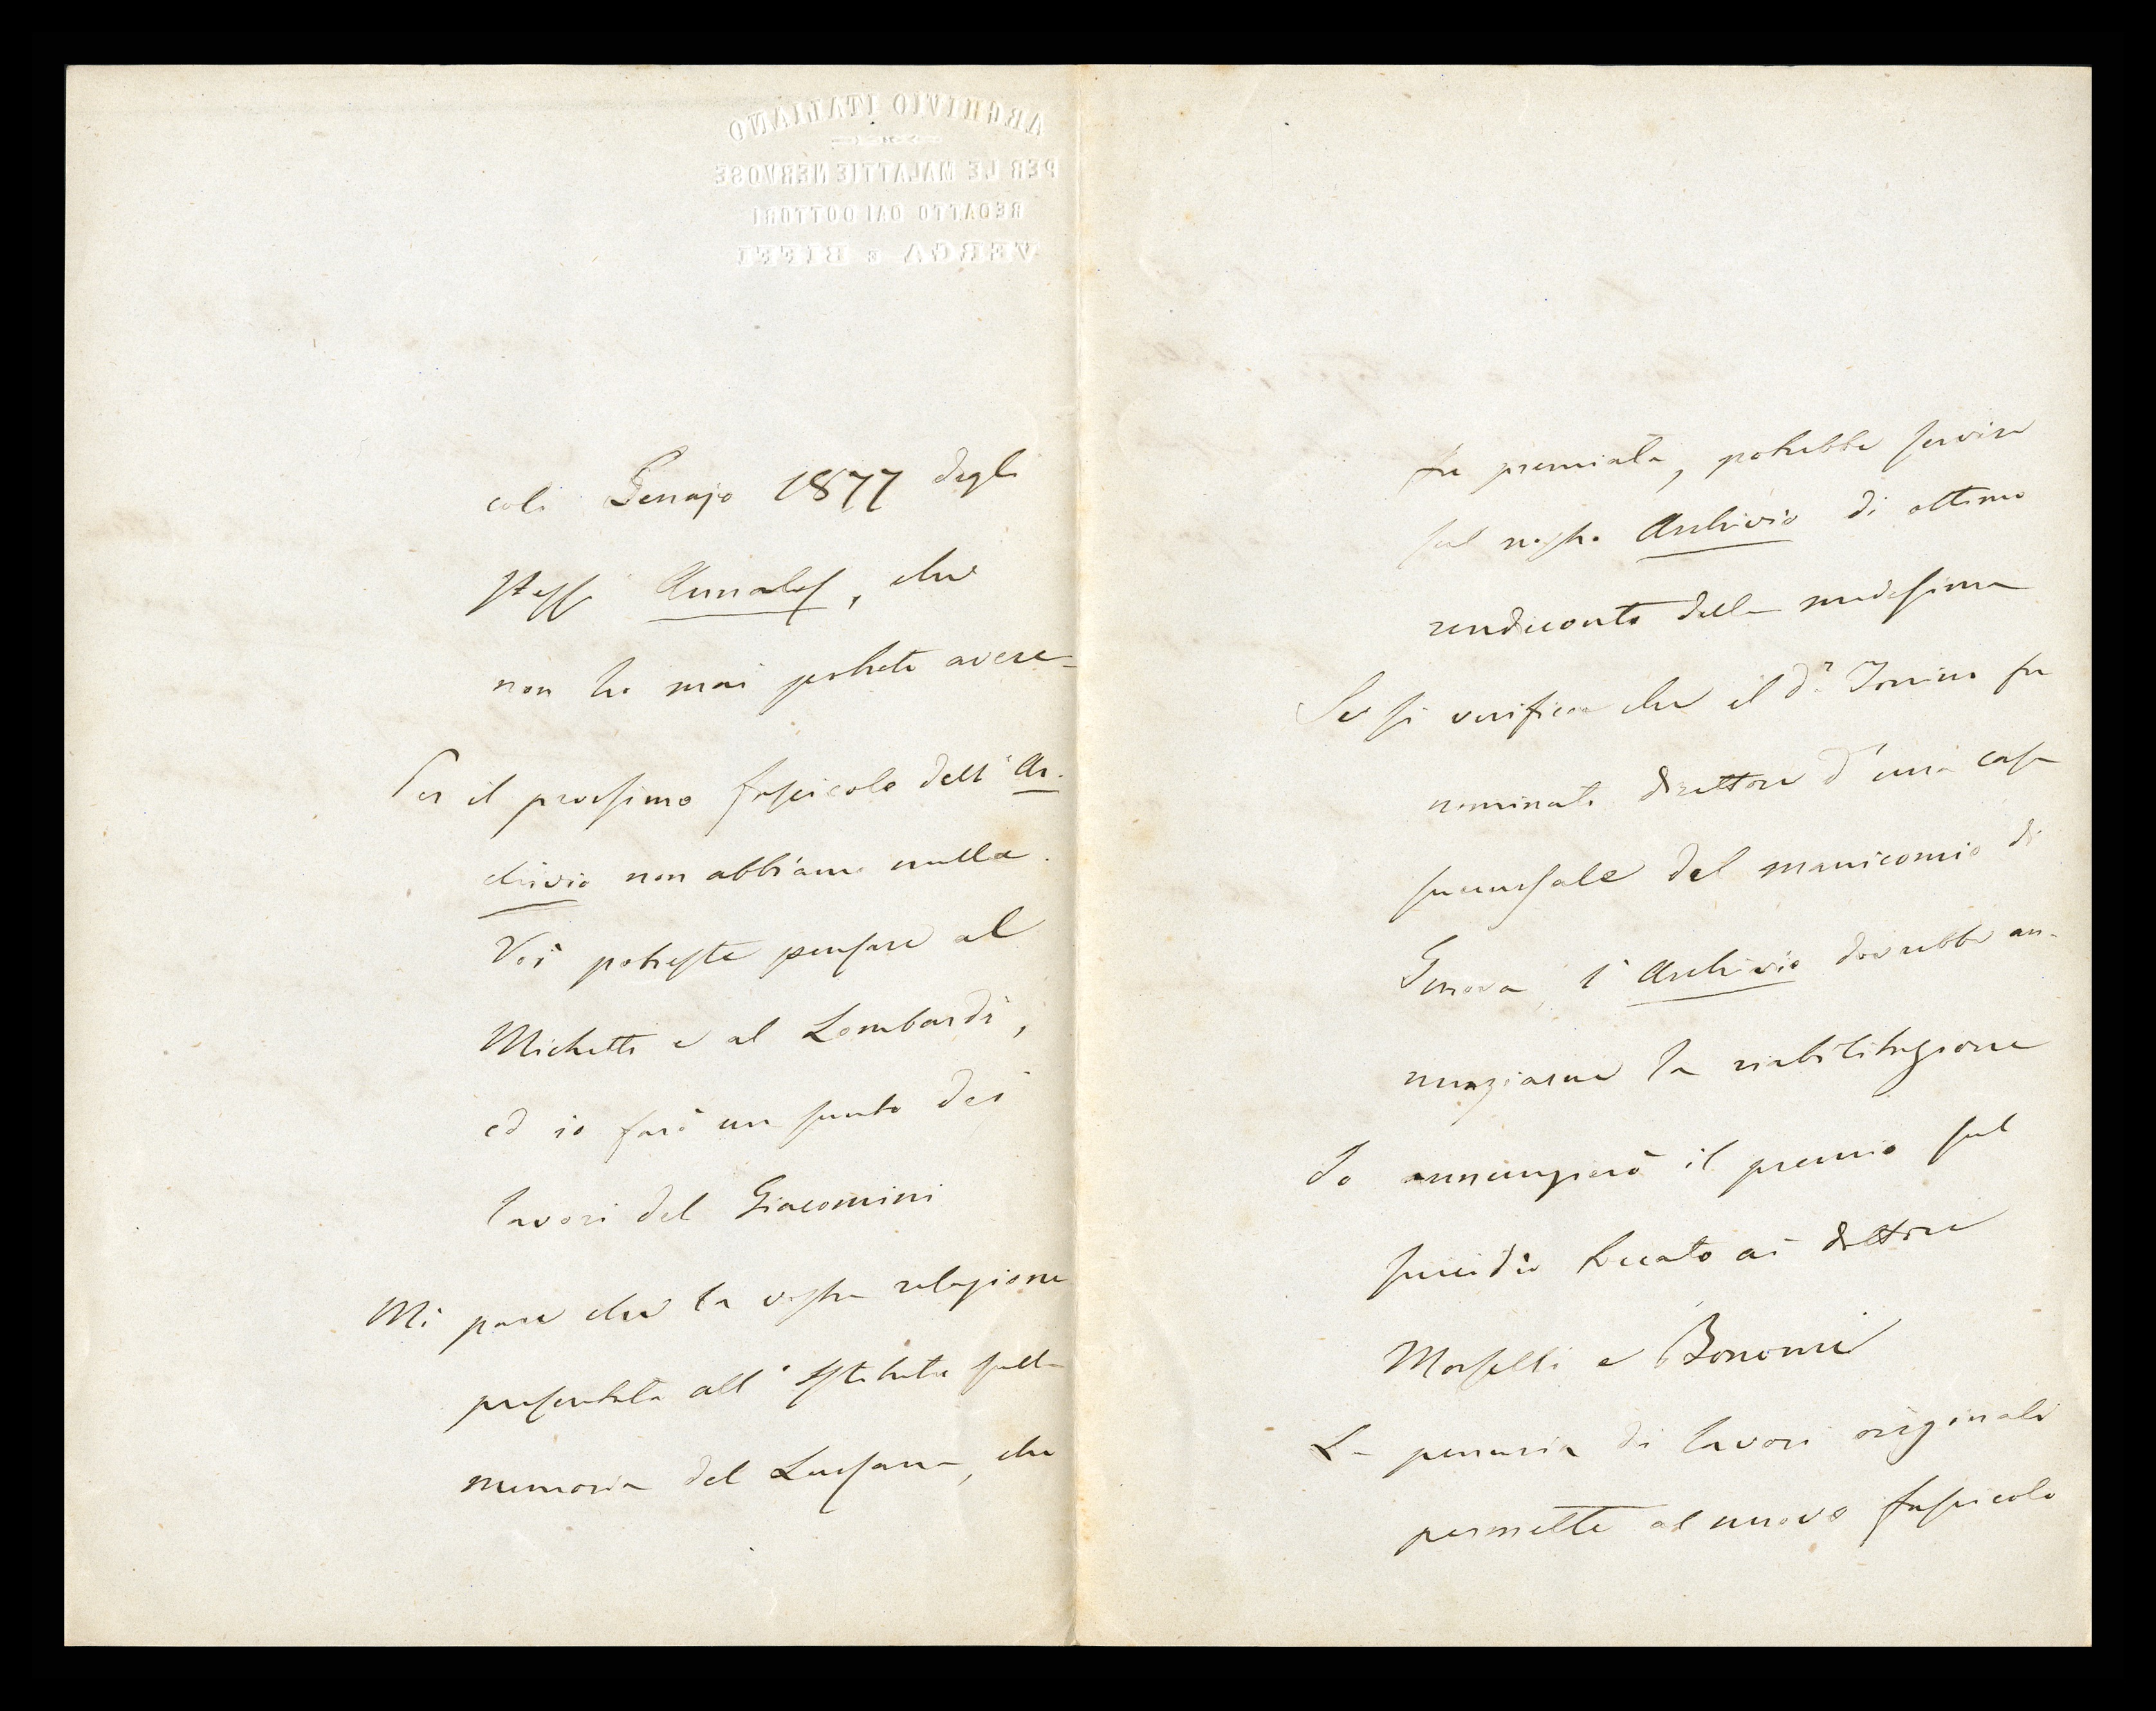 ARCHIVIO ITALIANO
PER LE MALATTIE NERVOSE
REDATTO DAI DOTTORI
VERGA E BIFFI
coli Genajo 1877 degli
stessi Annales, che
non ho mai potuto avere
Per il prossimo fascicolo dell'Ar-
chivio non abbiamo nulla.
Voi potreste pensare al
Michetti e al Lombardi,
ed io farò un sunto dei
lavori del Giacomini
Mi pare che la vostra relazione
presentata all'Istituto sulla
memoria del Lussana, che
fu premiata, potrebbe servire
sul nostro Archivio di ottimo
rendiconto della medesima
Se si verifica che il dr. Tonino fu
nominato direttore d'una casa
succursale del manicomio di
Genova, l'Archivio dovrebbe an-
nunziarne la riabilitazione
Io annunzierò il premio sul
suicidio toccato ai dottori
Morselli e Bonomi
La penuria di lavori originali
permette al nuovo fascicolo